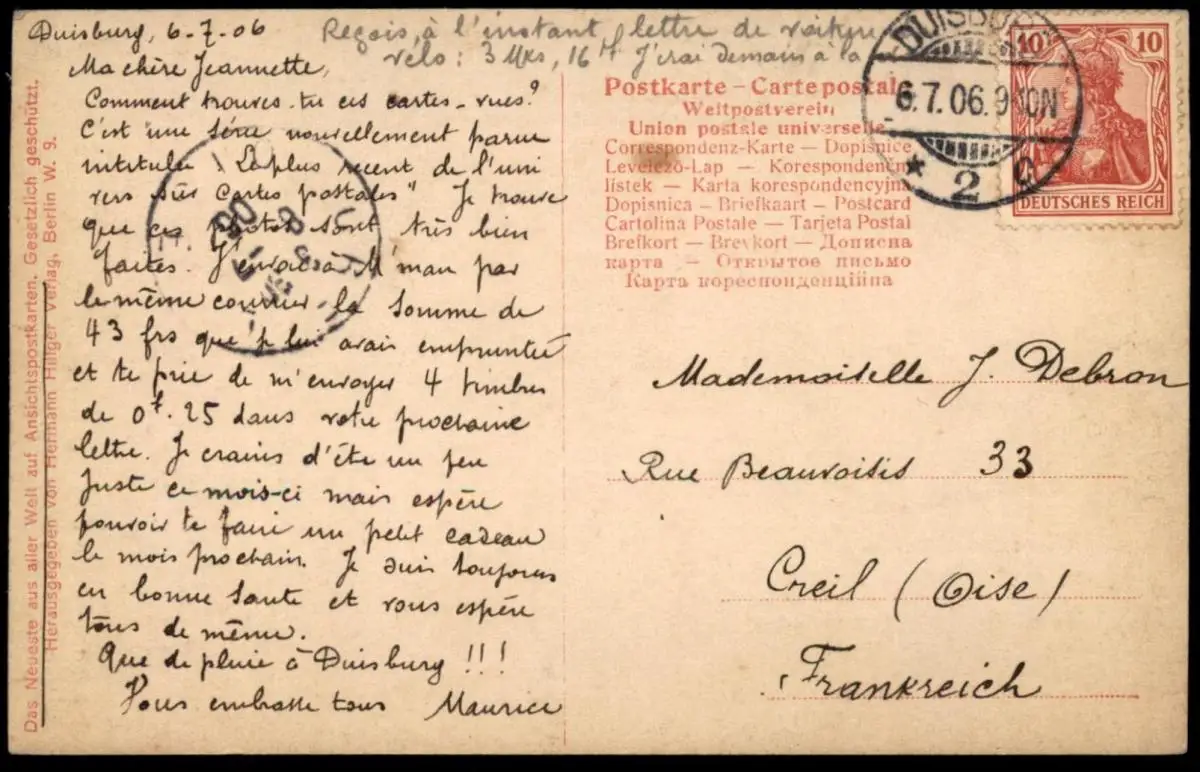 Duisburg, 6-7-06
Reçois, à l'instant, lettre de
vélo: 3 Mks, 16 J'irai demain à la
Ma chère Jeannette,
Comment trouves-tu ces cartes-vues?
C'est une série nouvellement parue
intitulée "Le plus récent de l'uni
vers sur cartes postales" Je trouve
que ces photos sont très bien
faites. J'envoie à M'man par
le même courrier la somme de
43 frs que je lui avais empruntée
et te prie de m'envoyer 4 timbres
de 0f.25 dans votre prochaine
lettre. Je crains d'être un peu
juste ce mois-ci mais espère
pouvoir te faire un petit cadeau
le mois prochain. Je suis toujours
en bonne santé et vous espère
tous de même.
Que de pluie à Duisburg !!!
Vous embrasse tous Maurice
Das Neueste aus aller Welt auf Ansichtspostkarten. Gesetzlich geschützt.
Herausgegeben von Hermann Hillger Verlag, Berlin W. 9.
Postkarte - Carte postale
Weltpostverein
Union postale universelle
Correspondenz-Karte — Dopisnice
Levelező-Lap — Korespondenční
lístek — Karta korespondencyjna
Dopisnica — Briefkaart — Postcard
Cartolina Postale — Tarjeta Postal
Brefkort — Brevkort — Дописна
карта — Открытое письмо
Карта кореспонденційна
DUISBURG
6.7.06.9-10N
* 2 c
10 10
DEUTSCHES REICH
Mademoiselle J. Debron
Rue Beauvoisis 33
Creil (Oise)
Frankreich